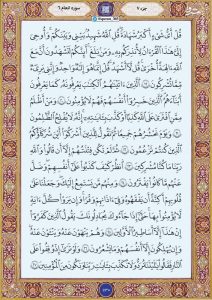 جزء ٧
سورة الأنعام ٦
قُلْ أَيُّ شَيْءٍ أَكْبَرُ شَهَادَةً قُلِ اللَّهُ شَهِيدٌ بَيْنِي وَبَيْنَكُمْ وَأُوحِيَ
إِلَيَّ هَذَا الْقُرْءَانُ لِأُنذِرَكُم بِهِ وَمَن بَلَغَ أَئِنَّكُمْ لَتَشْهَدُونَ أَنَّ مَعَ
اللَّهِ ءَالِهَةً أُخْرَى قُل لَّا أَشْهَدُ قُلْ إِنَّمَا هُوَ إِلَهٌ وَاحِدٌ وَإِنَّنِي بَرِيءٌ
مِّمَّا تُشْرِكُونَ ١٩ الَّذِينَ ءَاتَيْنَاهُمُ الْكِتَابَ يَعْرِفُونَهُ كَمَا يَعْرِفُونَ
أَبْنَاءَهُمُ الَّذِينَ خَسِرُوا أَنفُسَهُمْ فَهُمْ لَا يُؤْمِنُونَ ٢٠ وَمَنْ أَظْلَمُ
مِمَّنِ افْتَرَى عَلَى اللَّهِ كَذِبًا أَوْ كَذَّبَ بِآيَاتِهِ إِنَّهُ لَا يُفْلِحُ الظَّالِمُونَ
٢١ وَيَوْمَ نَحْشُرُهُمْ جَمِيعًا ثُمَّ نَقُولُ لِلَّذِينَ أَشْرَكُوا أَيْنَ شُرَكَاؤُكُمُ
الَّذِينَ كُنتُمْ تَزْعُمُونَ ٢٢ ثُمَّ لَمْ تَكُن فِتْنَتُهُمْ إِلَّا أَن قَالُوا وَاللَّهِ
رَبِّنَا مَا كُنَّا مُشْرِكِينَ ٢٣ انظُرْ كَيْفَ كَذَبُوا عَلَى أَنفُسِهِمْ وَضَلَّ
عَنْهُم مَّا كَانُوا يَفْتَرُونَ ٢٤ وَمِنْهُم مَّن يَسْتَمِعُ إِلَيْكَ وَجَعَلْنَا عَلَى
قُلُوبِهِمْ أَكِنَّةً أَن يَفْقَهُوهُ وَفِي ءَاذَانِهِمْ وَقْرًا وَإِن يَرَوْا كُلَّ ءَايَةٍ
لَّا يُؤْمِنُوا بِهَا حَتَّى إِذَا جَاءُوكَ يُجَادِلُونَكَ يَقُولُ الَّذِينَ كَفَرُوا
إِنْ هَذَا إِلَّا أَسَاطِيرُ الْأَوَّلِينَ ٢٥ وَهُمْ يَنْهَوْنَ عَنْهُ وَيَنْأَوْنَ عَنْهُ
وَإِن يُهْلِكُونَ إِلَّا أَنفُسَهُمْ وَمَا يَشْعُرُونَ ٢٦ وَلَوْ تَرَى إِذْ وُقِفُوا عَلَى
النَّارِ فَقَالُوا يَا لَيْتَنَا نُرَدُّ وَلَا نُكَذِّبَ بِآيَاتِ رَبِّنَا وَنَكُونَ مِنَ الْمُؤْمِنِينَ ٢٧
١٣٠